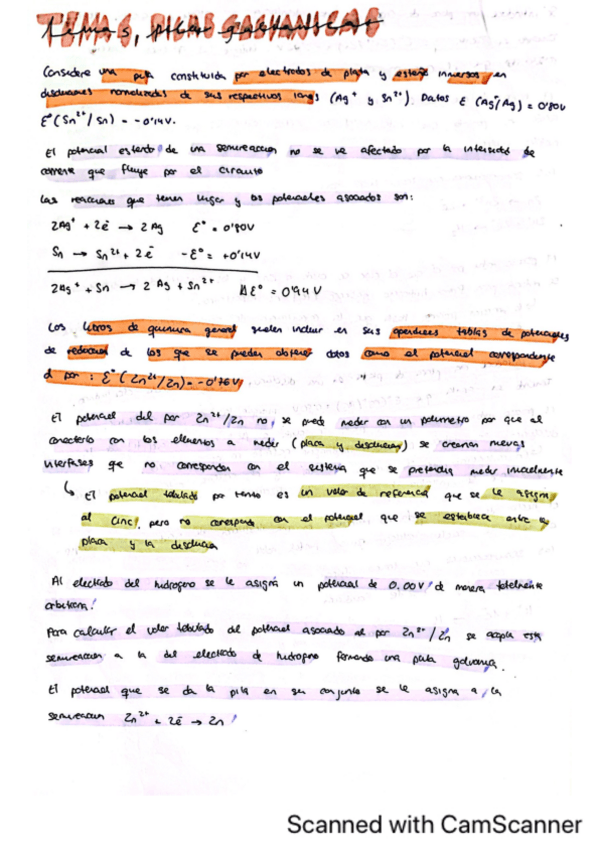 TEMA 6, PILAS GALVANICAS
Considere una pila constituida por electrodos de plata y estaño inmersos en
disoluciones normalizadas de sus respectivos iones (Ag⁺ y Sn²⁺). Datos E (Ag⁺/Ag) = 0'80V
E°(Sn²⁺/Sn) = -0'14V.
El potencial estandar de una semireaccion no se ve afectado por la intensidad de
corriente que fluye por el circuito
Las reacciones que tienen lugar y los potenciales asociados son:
2Ag⁺ + 2e⁻ → 2Ag E° = 0'80V
Sn → Sn²⁺ + 2e⁻ -E° = +0'14V
2Ag⁺ + Sn → 2Ag + Sn²⁺ ΔE° = 0'94V
Los libros de quimica general suelen incluir en sus apendices tablas de potenciales
de reduccion de los que se pueden obtener datos como el potencial correspondiente
al par: E°(Zn²⁺/Zn) = -0'76V
El potencial del par Zn²⁺/Zn no, se puede medir con un polimetro por que al
conectarlo con los elementos a medir (placa y disolucion) se crearian nuevas
interfases que no corresponden con el sistema que se pretendia medir inicialmente
↳ El potencial tabulado por tanto es un valor de referencia que se le asigna
al cinc, pero no corresponde con el potencial que se establece entre la
placa y la disolucion
Al electrodo del hidrogeno se le asigna un potencial de 0.00V de manera totalmente
arbitraria.
Para calcular el valor tabulado del potencial asociado al par Zn²⁺/Zn se acopla esta
semireaccion a la del electrodo de hidrogeno formando una pila galvanica.
El potencial que se da la pila en su conjunto se le asigna a la
semireaccion Zn²⁺ + 2e⁻ → Zn
Scanned with CamScanner